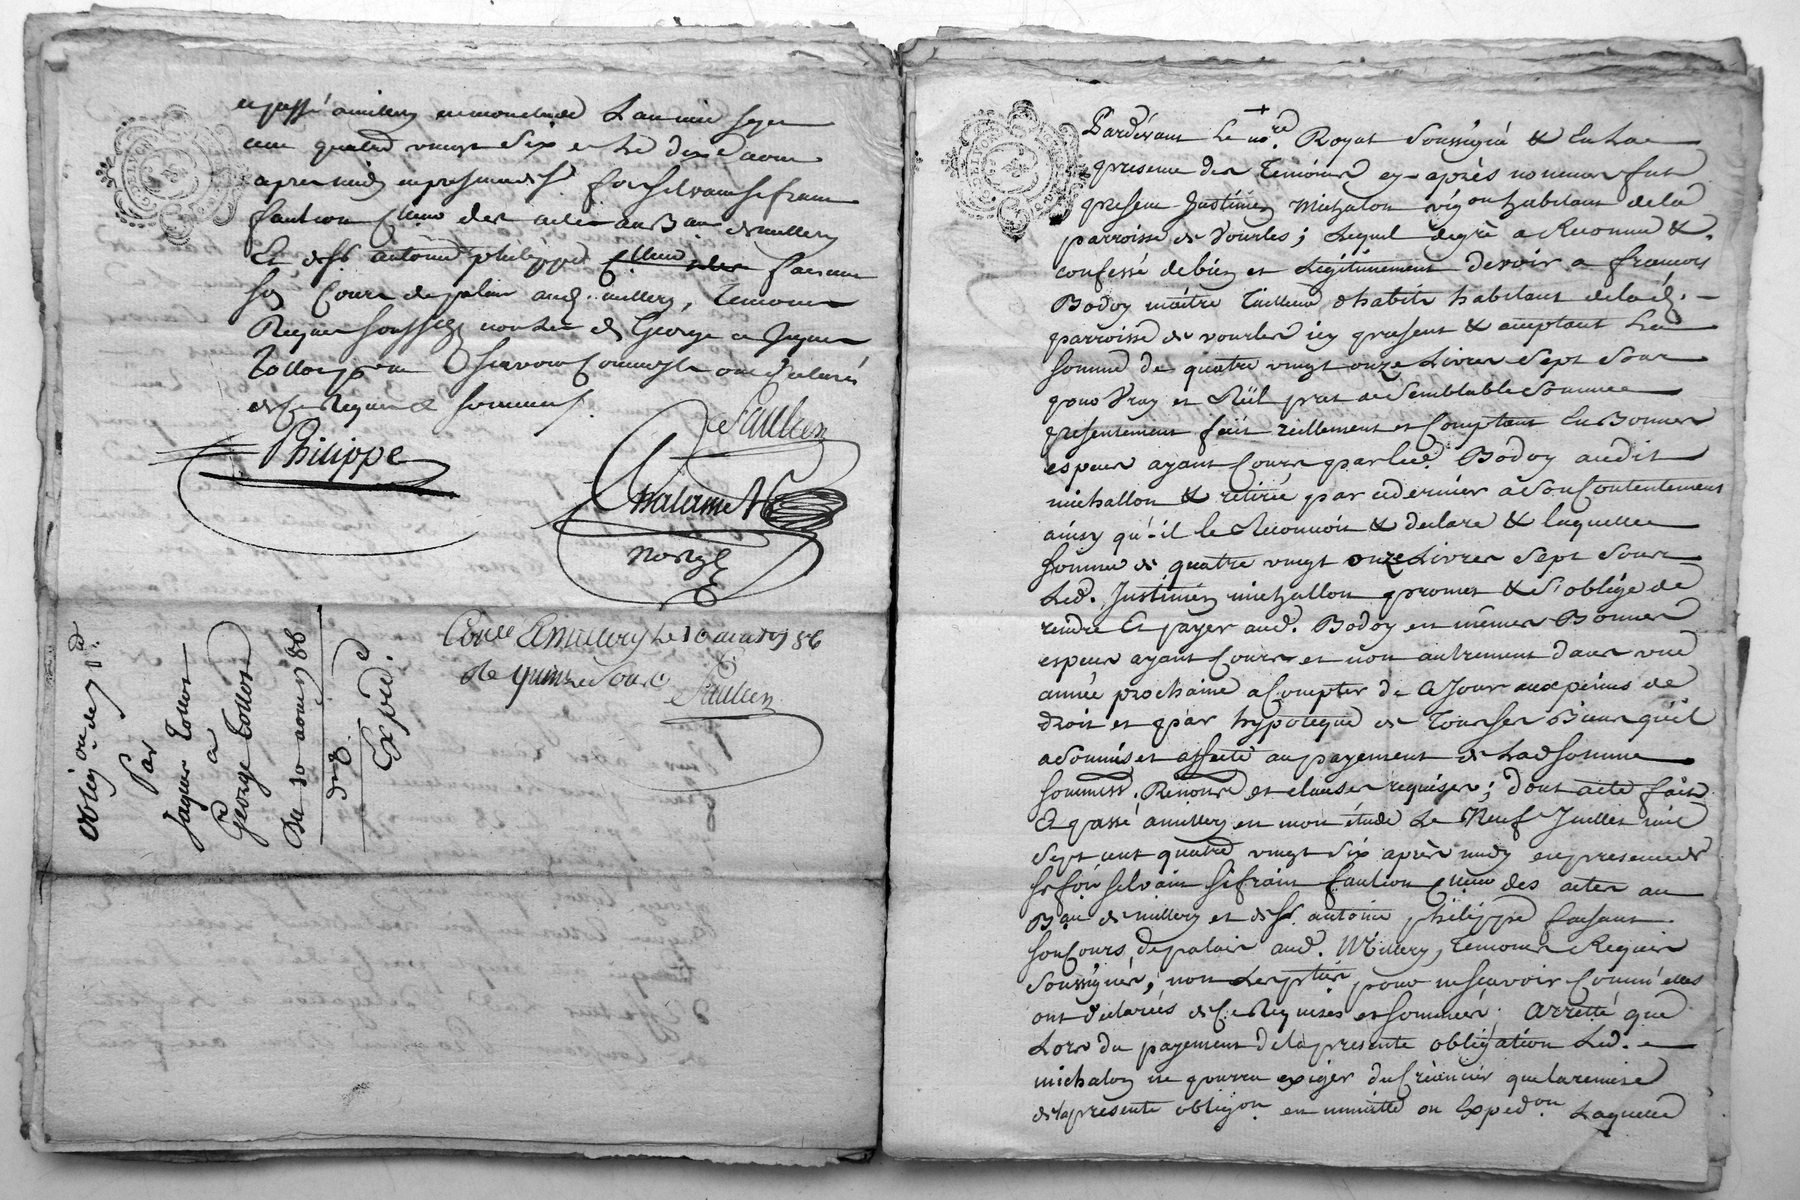 et passé a millery en mon etude L'an mil sept
cent quatre vingt Six et Le dix aoust
après midy en presence de Sr. françois silvain sifrein
faulcon C.lleur des actes au Bau de millery
Et de Sr. antoine philippe faisant
Son Cours de palais aud. millery, temoins
Requis soussignés non Led. George et Jaques
Tollot pour ne Scavoir Comme ils ont déclarés
de Ce Requis et sommés.
Faulcon
Philippe
Chalamel
nore
Conlé a Millery Le 10 aoust 1786
Rc quinze Sous
Faulcon
Obligaon de
Par
Jaques Tollot
a
George Tollot
Du 10 aoust 86
Expiéd.
Pardevant Le nore. Royal Soussigné & En La
presence des Temoins cy-après nommés fut
present Justinien Michalon vigon habitant de la
parroisse de Vourles; Lequel degré a Reconnu &
confessé debien et Légitimement devoir a francois
Bodoy maitre Tailleur d'habits habitant de lad.
parroisse de vourles icy present & acceptant La
somme de quatre vingt onze Livres Sept Sous
pour Vray et Réel pret de Semblable Somme
presentement fait réellement et Comptant En Bonnes
especes ayant Cours par led. Bodoy audit
michallon & retirée par ce dernier a Son Contentement
ainsy qu'il le Reconnoit & declare & laquelle
somme de quatre vingt onze Livres Sept Sous
Led. Justinien michallon promet & S'oblige de
rendre Et payer aud. Bodoy en mêmes Bonnes
especes ayant Cours et non autrement dans une
année prochaine a Compter de Ce Jour aux peines de
droit et par hypoteque de Tous Ses Biens qu'il
a Soumis et affecté au payement de Lad somme
soumission. Renons. et clauses requises; dont acte fait
Et passé a millery en mon étude Le Neuf Juillet mil
Sept cent quatre vingt Six après midy en presence de
Sr foïs silvain sifrein faulcon C.lleur des actes au
Bau de millery et de Sr. antoine philippe faisant
son Cours de palais aud. Millery, temoins Requis
Soussignés; non Les pties pour ne scavoir Comm'elles
ont declarés de Ce Requises et sommées. Arretté que
Lors du payement de la presente obligation Led.
michalon ne pourra exiger du Créancier que la remise
de la presente obligon. en minutte ou Expedon. Laquelle